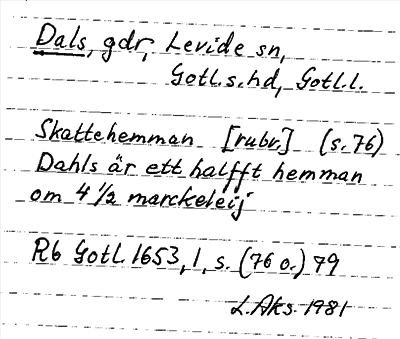 Dals, gdr, Levide sn,
Gotl. s. hd, Gotl. l.
Skattehemman [rubr.] (s. 76)
Dahls är ett halfft hemman
om 4 1/2 marckeleij
Rb Gotl. 1653, 1, s. (76 o.) 79
L. Aks. 1981